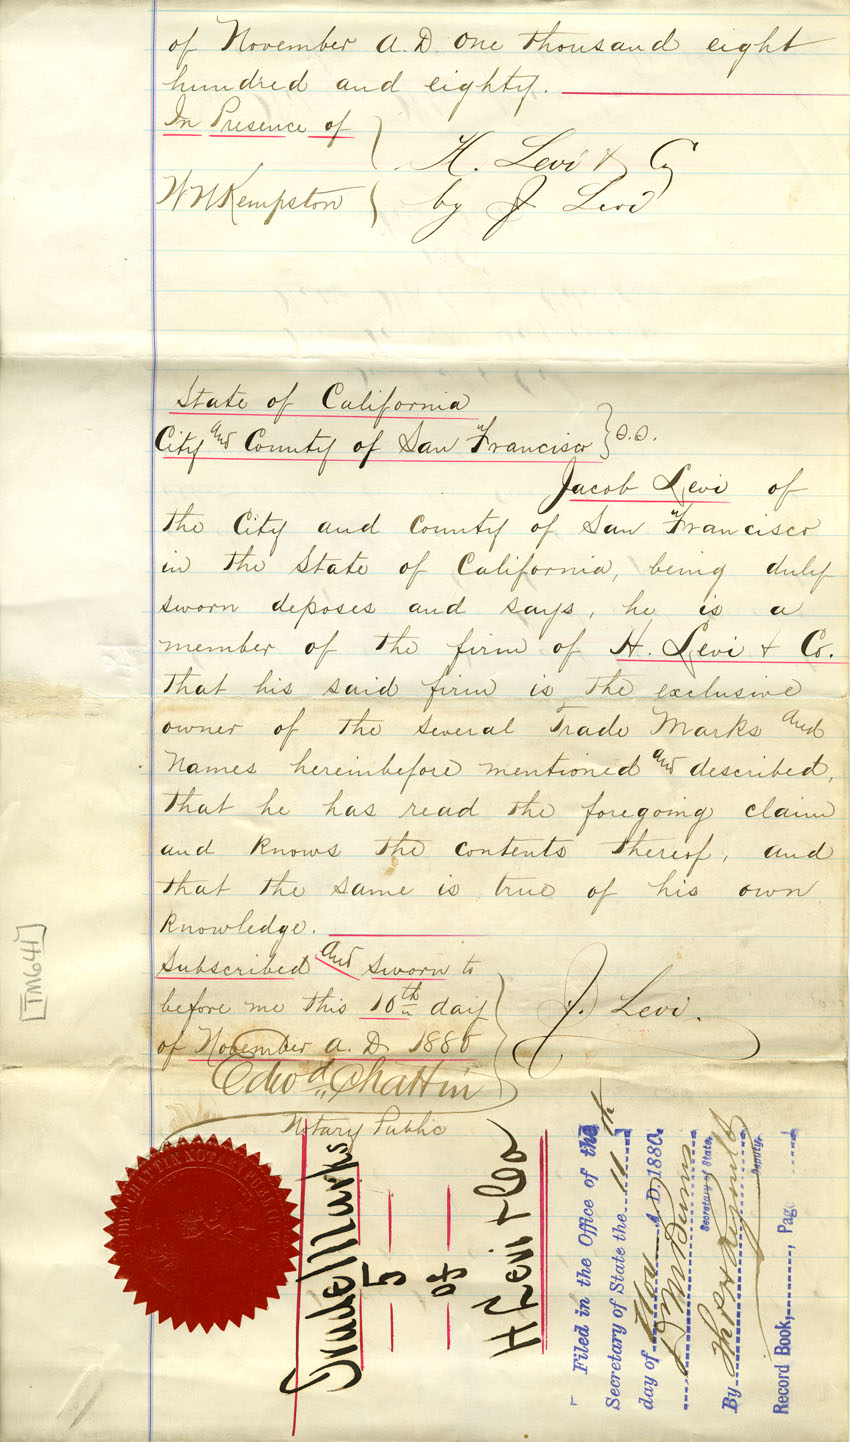 of November A.D. One thousand eight
hundred and eighty.
In Presence of
H. Levi & Cy
W H Kempston
by J Levi
State of California
City and County of San Francisco } S.S.
Jacob Levi of
the City and County of San Francisco
in the State of California, being duly
sworn deposes and says, he is a
member of the firm of H. Levi & Co.
that his said firm is the exclusive
owner of the several Trade Marks and
Names hereinbefore mentioned and described,
that he has read the foregoing claim
and knows the contents thereof, and
that the same is true of his own
knowledge.
Subscribed and sworn to
before me this 10th day
of November A.D. 1880
J. Levi.
Edwd Chattin
Notary Public
Trade Marks
5
of
H Levi & Co
Filed in the Office of the
Secretary of State the 11th
day of Nov A.D. 1880.
D M Burns
Secretary of State.
By Thos H Reynolds
Deputy.
Record Book, , Page
TM641